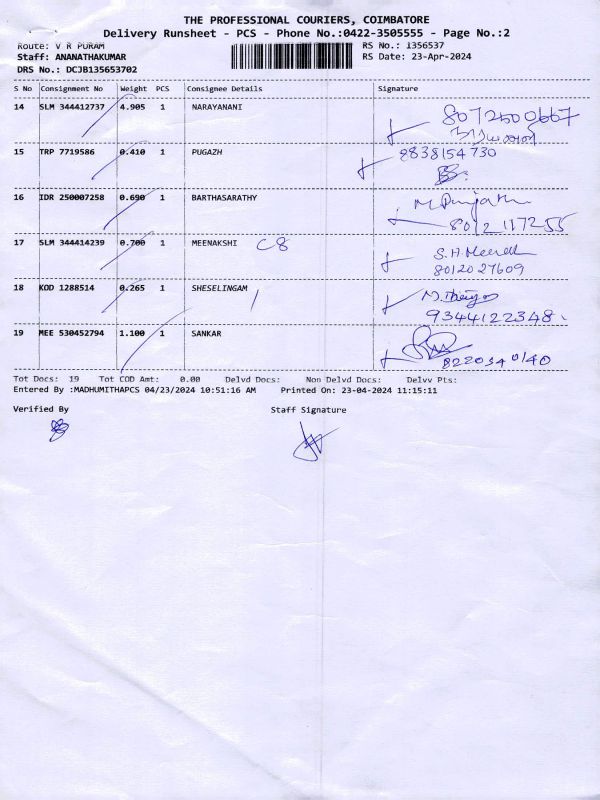 THE PROFESSIONAL COURIERS, COIMBATORE
Delivery Runsheet - PCS - Phone No.:0422-3505555 - Page No.:2
Route: V R PURAM RS No.: 1356537
Staff: ANANATHAKUMAR RS Date: 23-Apr-2024
DRS No.: DCJB135653702
S No Consignment No Weight PCS Consignee Details Signature
14 SLM 344412737 4.905 1 NARAYANANI 8072500667
15 TRP 7719586 0.410 1 PUGAZH 8838154730
16 IDR 250007258 0.690 1 BARTHASARATHY
8012117255
17 SLM 344414239 0.700 1 MEENAKSHI C8 S.H.Meenakshi
8012027609
18 KOD 1288514 0.265 1 SHESELINGAM
9344122348
19 MEE 530452794 1.100 1 SANKAR
8220340140
Tot Docs: 19 Tot COD Amt: 0.00 Delvd Docs: Non Delvd Docs: Delvv Pts:
Entered By :MADHUMITHAPCS 04/23/2024 10:51:16 AM Printed On: 23-04-2024 11:15:11
Verified By Staff Signature